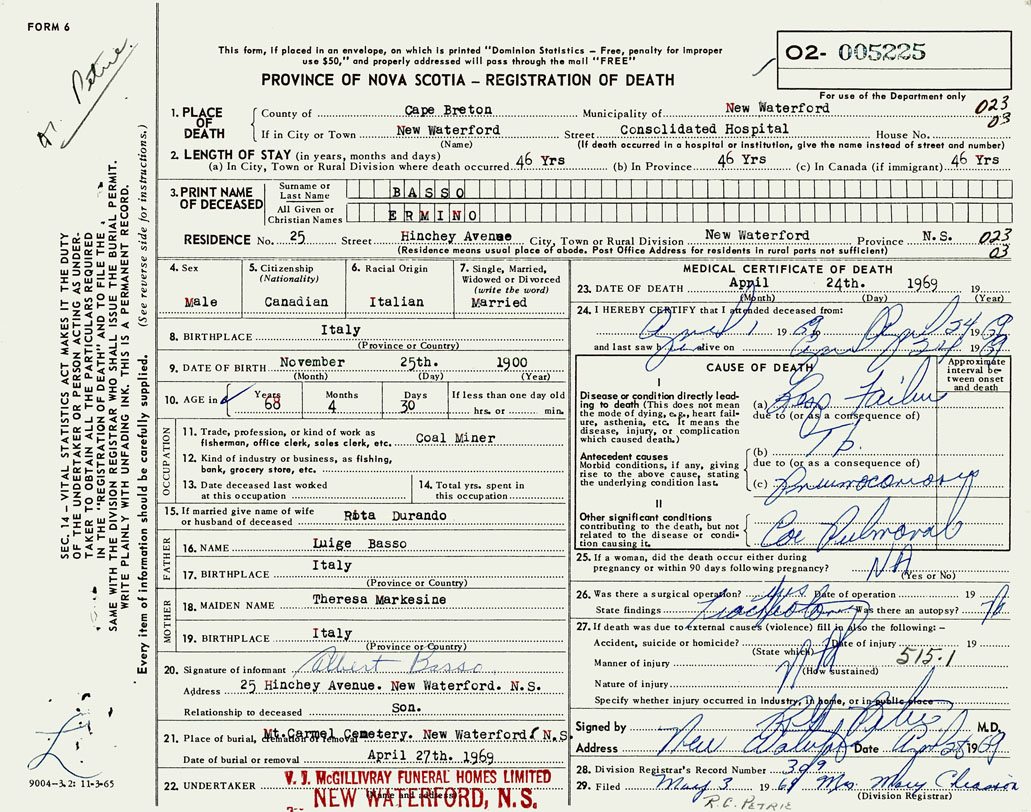 FORM 6
Dr. Petrie
This form, if placed in an envelope, on which is printed "Dominion Statistics – Free, penalty for improper
use $50," and properly addressed will pass through the mail "FREE"
PROVINCE OF NOVA SCOTIA – REGISTRATION OF DEATH
02- 005225
For use of the Department only
1. PLACE OF DEATH County of Cape Breton Municipality of New Waterford 023
If in City or Town New Waterford Street Consolidated Hospital House No. 03
(Name) (If death occurred in a hospital or institution, give the name instead of street and number)
2. LENGTH OF STAY (in years, months and days)
(a) In City, Town or Rural Division where death occurred 46 Yrs (b) In Province 46 Yrs (c) In Canada (if immigrant) 46 Yrs
3. PRINT NAME OF DECEASED Surname or Last Name BASSO
All Given or Christian Names ERMINO
RESIDENCE No. 25 Street Hinchey Avenue City, Town or Rural Division New Waterford Province N.S. 023
(Residence means usual place of abode. Post Office Address for residents in rural parts not sufficient) 03
4. Sex Male
5. Citizenship (Nationality) Canadian
6. Racial Origin Italian
7. Single, Married, Widowed or Divorced (write the word) Married
8. BIRTHPLACE Italy
(Province or Country)
9. DATE OF BIRTH November 25th. 1900
(Month) (Day) (Year)
10. AGE in Years 68 Months 4 Days 30 If less than one day old
hrs. or min.
OCCUPATION
11. Trade, profession, or kind of work as
fisherman, office clerk, sales clerk, etc. Coal Miner
12. Kind of industry or business, as fishing,
bank, grocery store, etc.
13. Date deceased last worked
at this occupation
14. Total yrs. spent in
this occupation
15. If married give name of wife
or husband of deceased Rita Durando
FATHER
16. NAME Luige Basso
17. BIRTHPLACE Italy
(Province or Country)
MOTHER
18. MAIDEN NAME Theresa Markesine
19. BIRTHPLACE Italy
(Province or Country)
20. Signature of informant Albert Basso
Address 25 Hinchey Avenue. New Waterford. N.S.
Relationship to deceased Son.
21. Place of burial, cremation or removal Mt.Carmel Cemetery. New Waterford N.S.
Date of burial or removal April 27th. 1969
22. UNDERTAKER V. J. McGILLIVRAY FUNERAL HOMES LIMITED
(Name and address)
NEW WATERFORD, N.S.
MEDICAL CERTIFICATE OF DEATH
23. DATE OF DEATH April 24th. 1969 19
(Month) (Day) (Year)
24. I HEREBY CERTIFY that I attended deceased from:
April 1 19 69 April 24 19 69
and last saw h alive on April 24 19 69
CAUSE OF DEATH
Approximate interval between onset and death
I
Disease or condition directly leading to death (This does not mean the mode of dying, e.g., heart failure, asthenia, etc. It means the disease, injury, or complication which caused death.)
(a) Resp Failure
due to (or as a consequence of)
Antecedent causes
Morbid conditions, if any, giving rise to the above cause, stating the underlying condition last.
(b) Tb.
due to (or as a consequence of)
(c) Pneumoconiosis
II
Other significant conditions contributing to the death, but not related to the disease or condition causing it.
Cor Pulmonal
25. If a woman, did the death occur either during
pregnancy or within 90 days following pregnancy? NA
(Yes or No)
26. Was there a surgical operation? yes. Date of operation 19
State findings Tracheotomy Was there an autopsy? No
27. If death was due to external causes (violence) fill in also the following: –
Accident, suicide or homicide? Date of injury 19
(State which)
Manner of injury NA 515.1
(How sustained)
Nature of injury
Specify whether injury occurred in Industry, in home, or in public place
Signed by M.D.
Address New Waterford Date Apr 28 19 69
28. Division Registrar's Record Number 399
29. Filed May 3 19 69 Mrs. Mary
(Division Registrar)
R.C. PETRIE
SEC. 14 – VITAL STATISTICS ACT MAKES IT THE DUTY
OF THE UNDERTAKER OR PERSON ACTING AS UNDER-
TAKER TO OBTAIN ALL THE PARTICULARS REQUIRED
IN THE "REGISTRATION OF DEATH" AND TO FILE THE
SAME WITH THE DIVISION REGISTRAR WHO SHALL ISSUE THE BURIAL PERMIT.
WRITE PLAINLY WITH UNFADING INK. THIS IS A PERMANENT RECORD.
Every item of information should be carefully supplied. (See reverse side for instructions.)
9004–3.2: 11-3-65